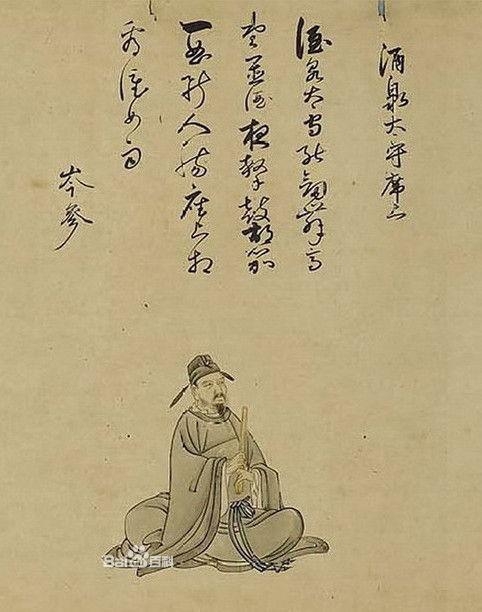 酒泉太守席上
酒泉太守能劔舞高
堂置酒夜擊鼓胡笳
一曲断人腸座上相
看淚如雨
岑參
Bai百科